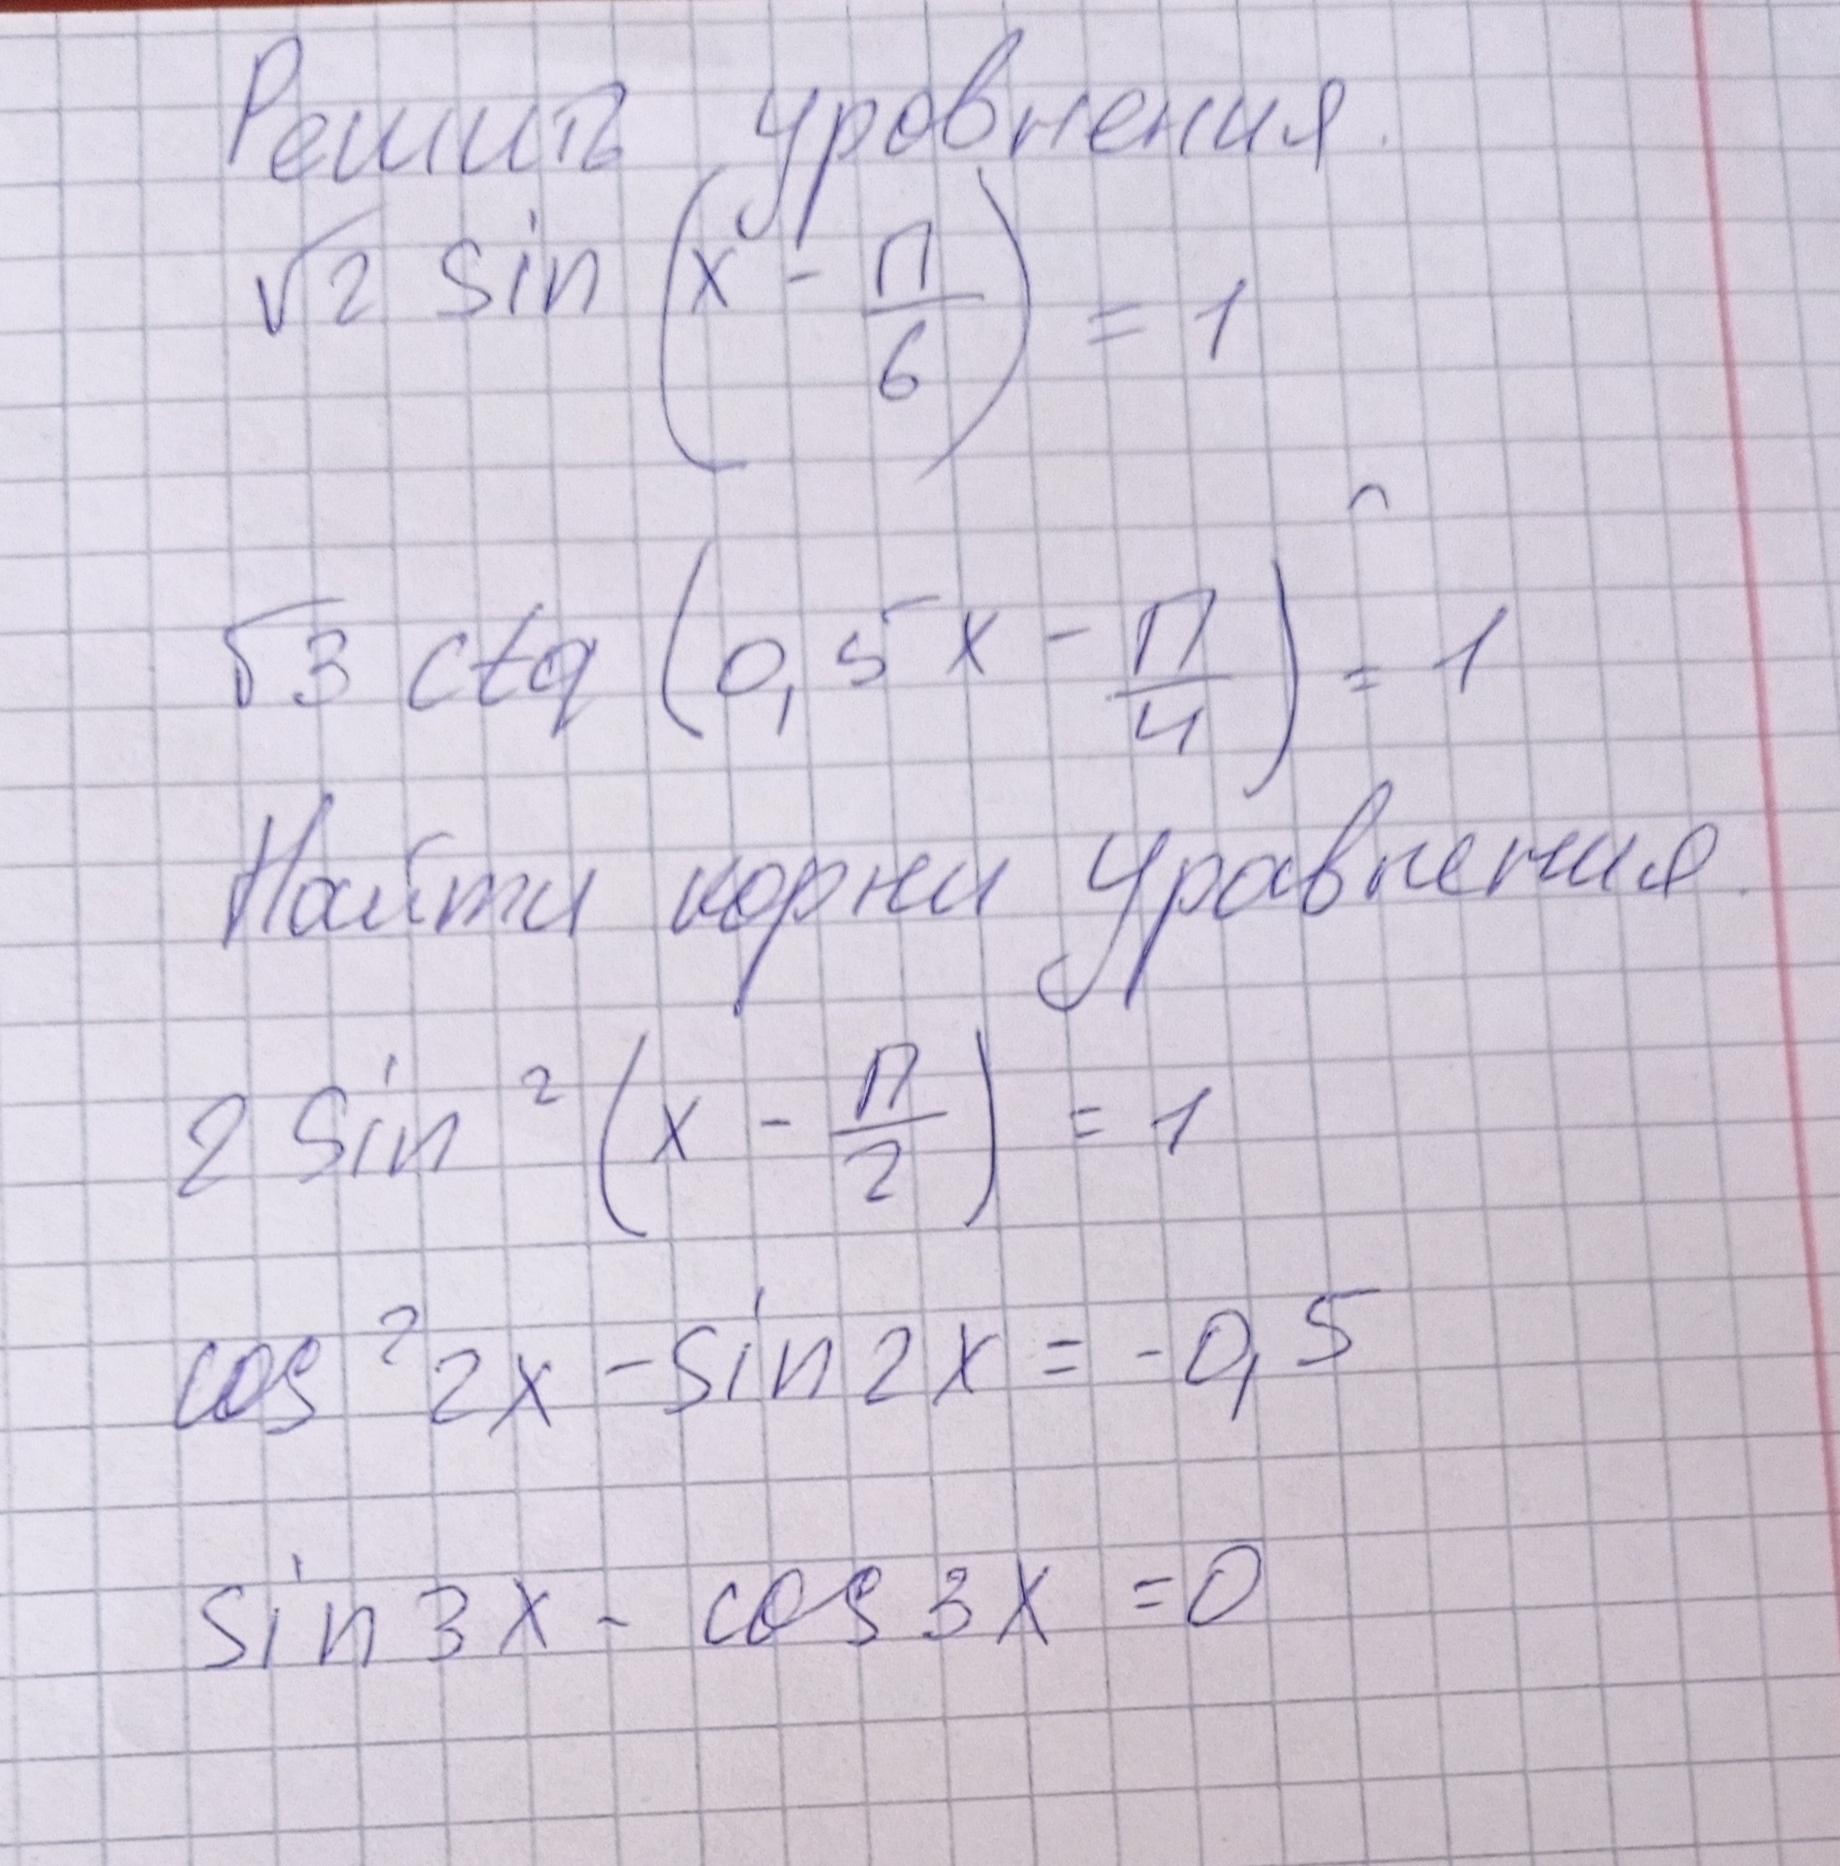 Решить уровнения.
√2 sin (x - П/6) = 1
√3 ctq (0,5x - П/4) = 1
Найти корни уравнения.
2 Sin² (x - П/2) = 1
cos² 2x - sin 2x = -0,5
sin 3x - cos 3x = 0